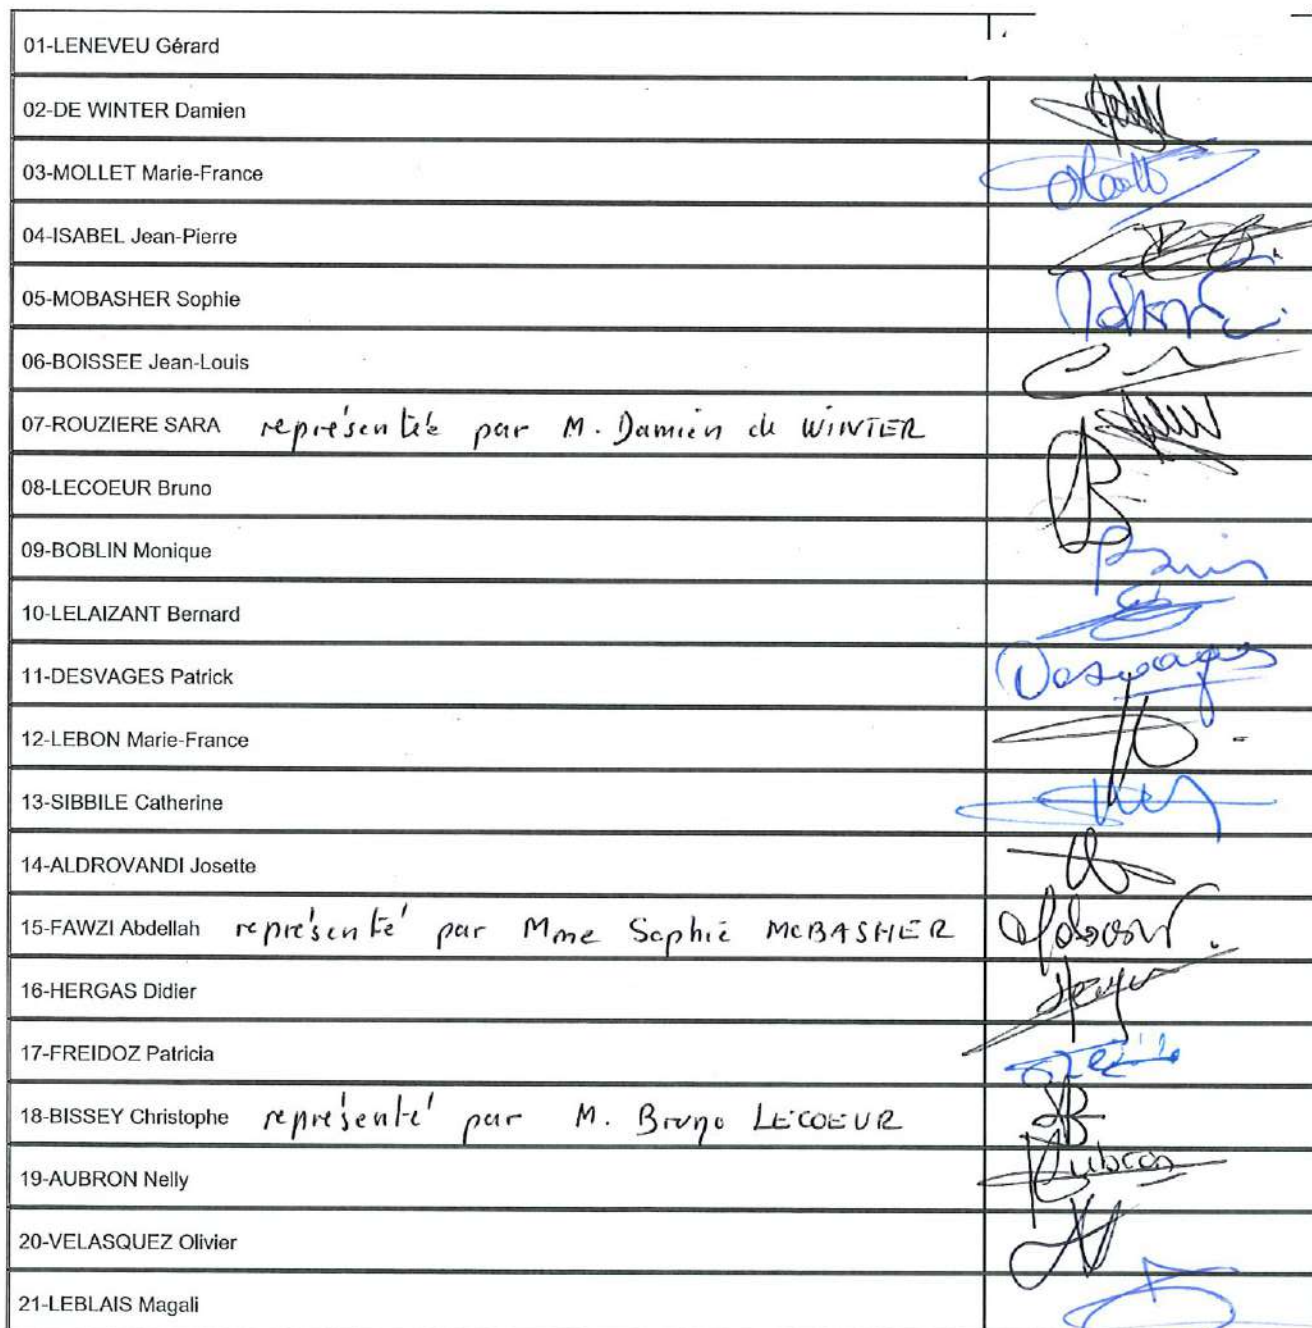 01-LENEVEU Gérard
02-DE WINTER Damien
03-MOLLET Marie-France
04-ISABEL Jean-Pierre
05-MOBASHER Sophie
06-BOISSEE Jean-Louis
07-ROUZIERE SARA représentée par M. Damien de WINTER
08-LECOEUR Bruno
09-BOBLIN Monique
10-LELAIZANT Bernard
11-DESVAGES Patrick Desvages
12-LEBON Marie-France
13-SIBBILE Catherine
14-ALDROVANDI Josette
15-FAWZI Abdellah représenté par Mme Sophie MOBASHER
16-HERGAS Didier
17-FREIDOZ Patricia
18-BISSEY Christophe représenté par M. Bruno LECOEUR
19-AUBRON Nelly Aubron
20-VELASQUEZ Olivier
21-LEBLAIS Magali